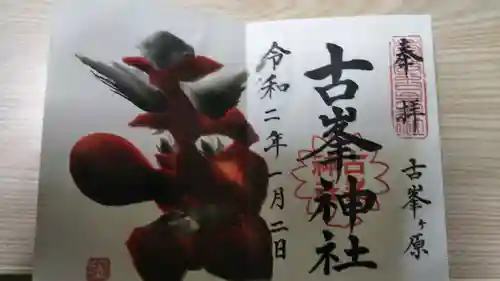 奉拝
古峯ヶ原
古峯神社
令和二年一月二日